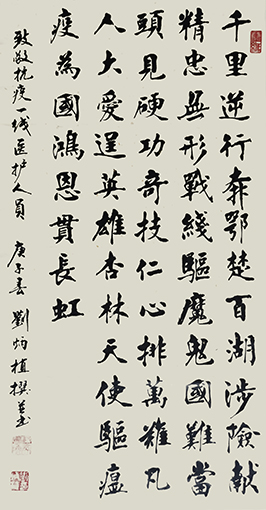 千里逆行奔鄂楚百湖涉險献
精忠無形戰綫驅魔鬼國難當
頭見硬功奇技仁心排萬難凡
人大愛逞英雄杏林天使驅瘟
疫為國鴻恩貫長虹
致敬抗疫一线医护人員 庚子春 劉炳植撰並书